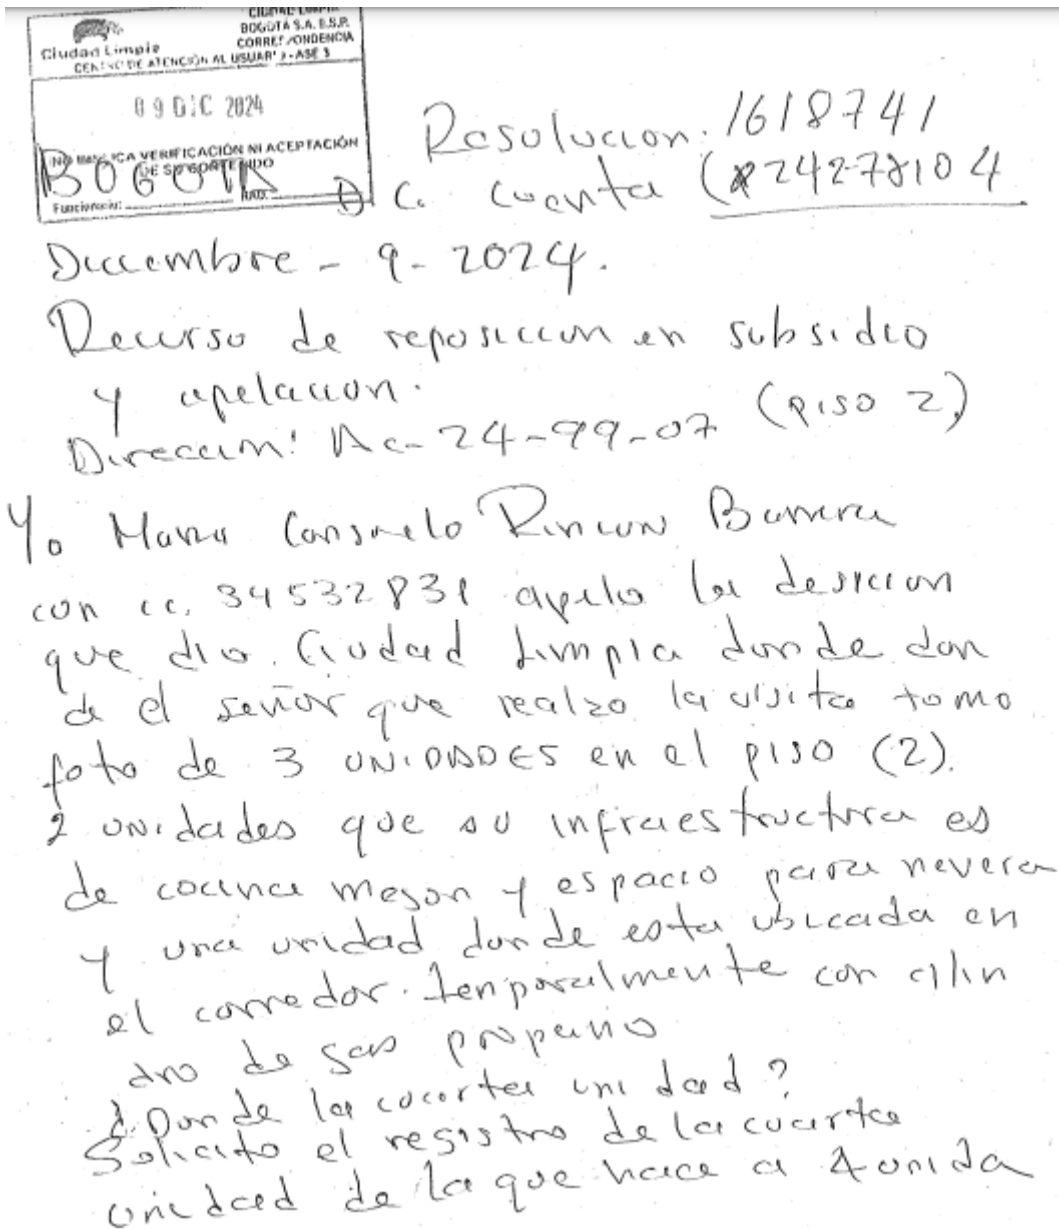 CIUDAD LIMPIA
BOGOTÁ S.A. E.S.P.
CORRESPONDENCIA
Ciudad Limpia
CENTRO DE ATENCIÓN AL USUARIO - ASE 3
09 DIC 2024
Resolucion. 1618741
NO IMPLICA VERIFICACIÓN NI ACEPTACIÓN
DE SU CONTENIDO
Funcionario: RAD.
BOGOTA D C. cuenta (
Diciembre - 9 - 2024.
Recurso de reposicion en subsidio
y apelacion.
Direccion: Ac-24-99-07 (piso 2)
Yo Maria Consuelo Rincon Barrera
con cc. 34532831 apelo la desicion
que dio. Ciudad Limpia donde don
de el señor que realzo la visita tomo
foto de 3 UNIDADES en el piso (2).
2 unidades que su infraestructura es
de cocina meson y espacio para nevera
y una unidad donde esta ubicada en
el corredor. temporalmente con cilin
dro de gas propano
¿Donde la cuarta unidad?
Solicito el registro de la cuarta
unidad de la que hace a 4 unida